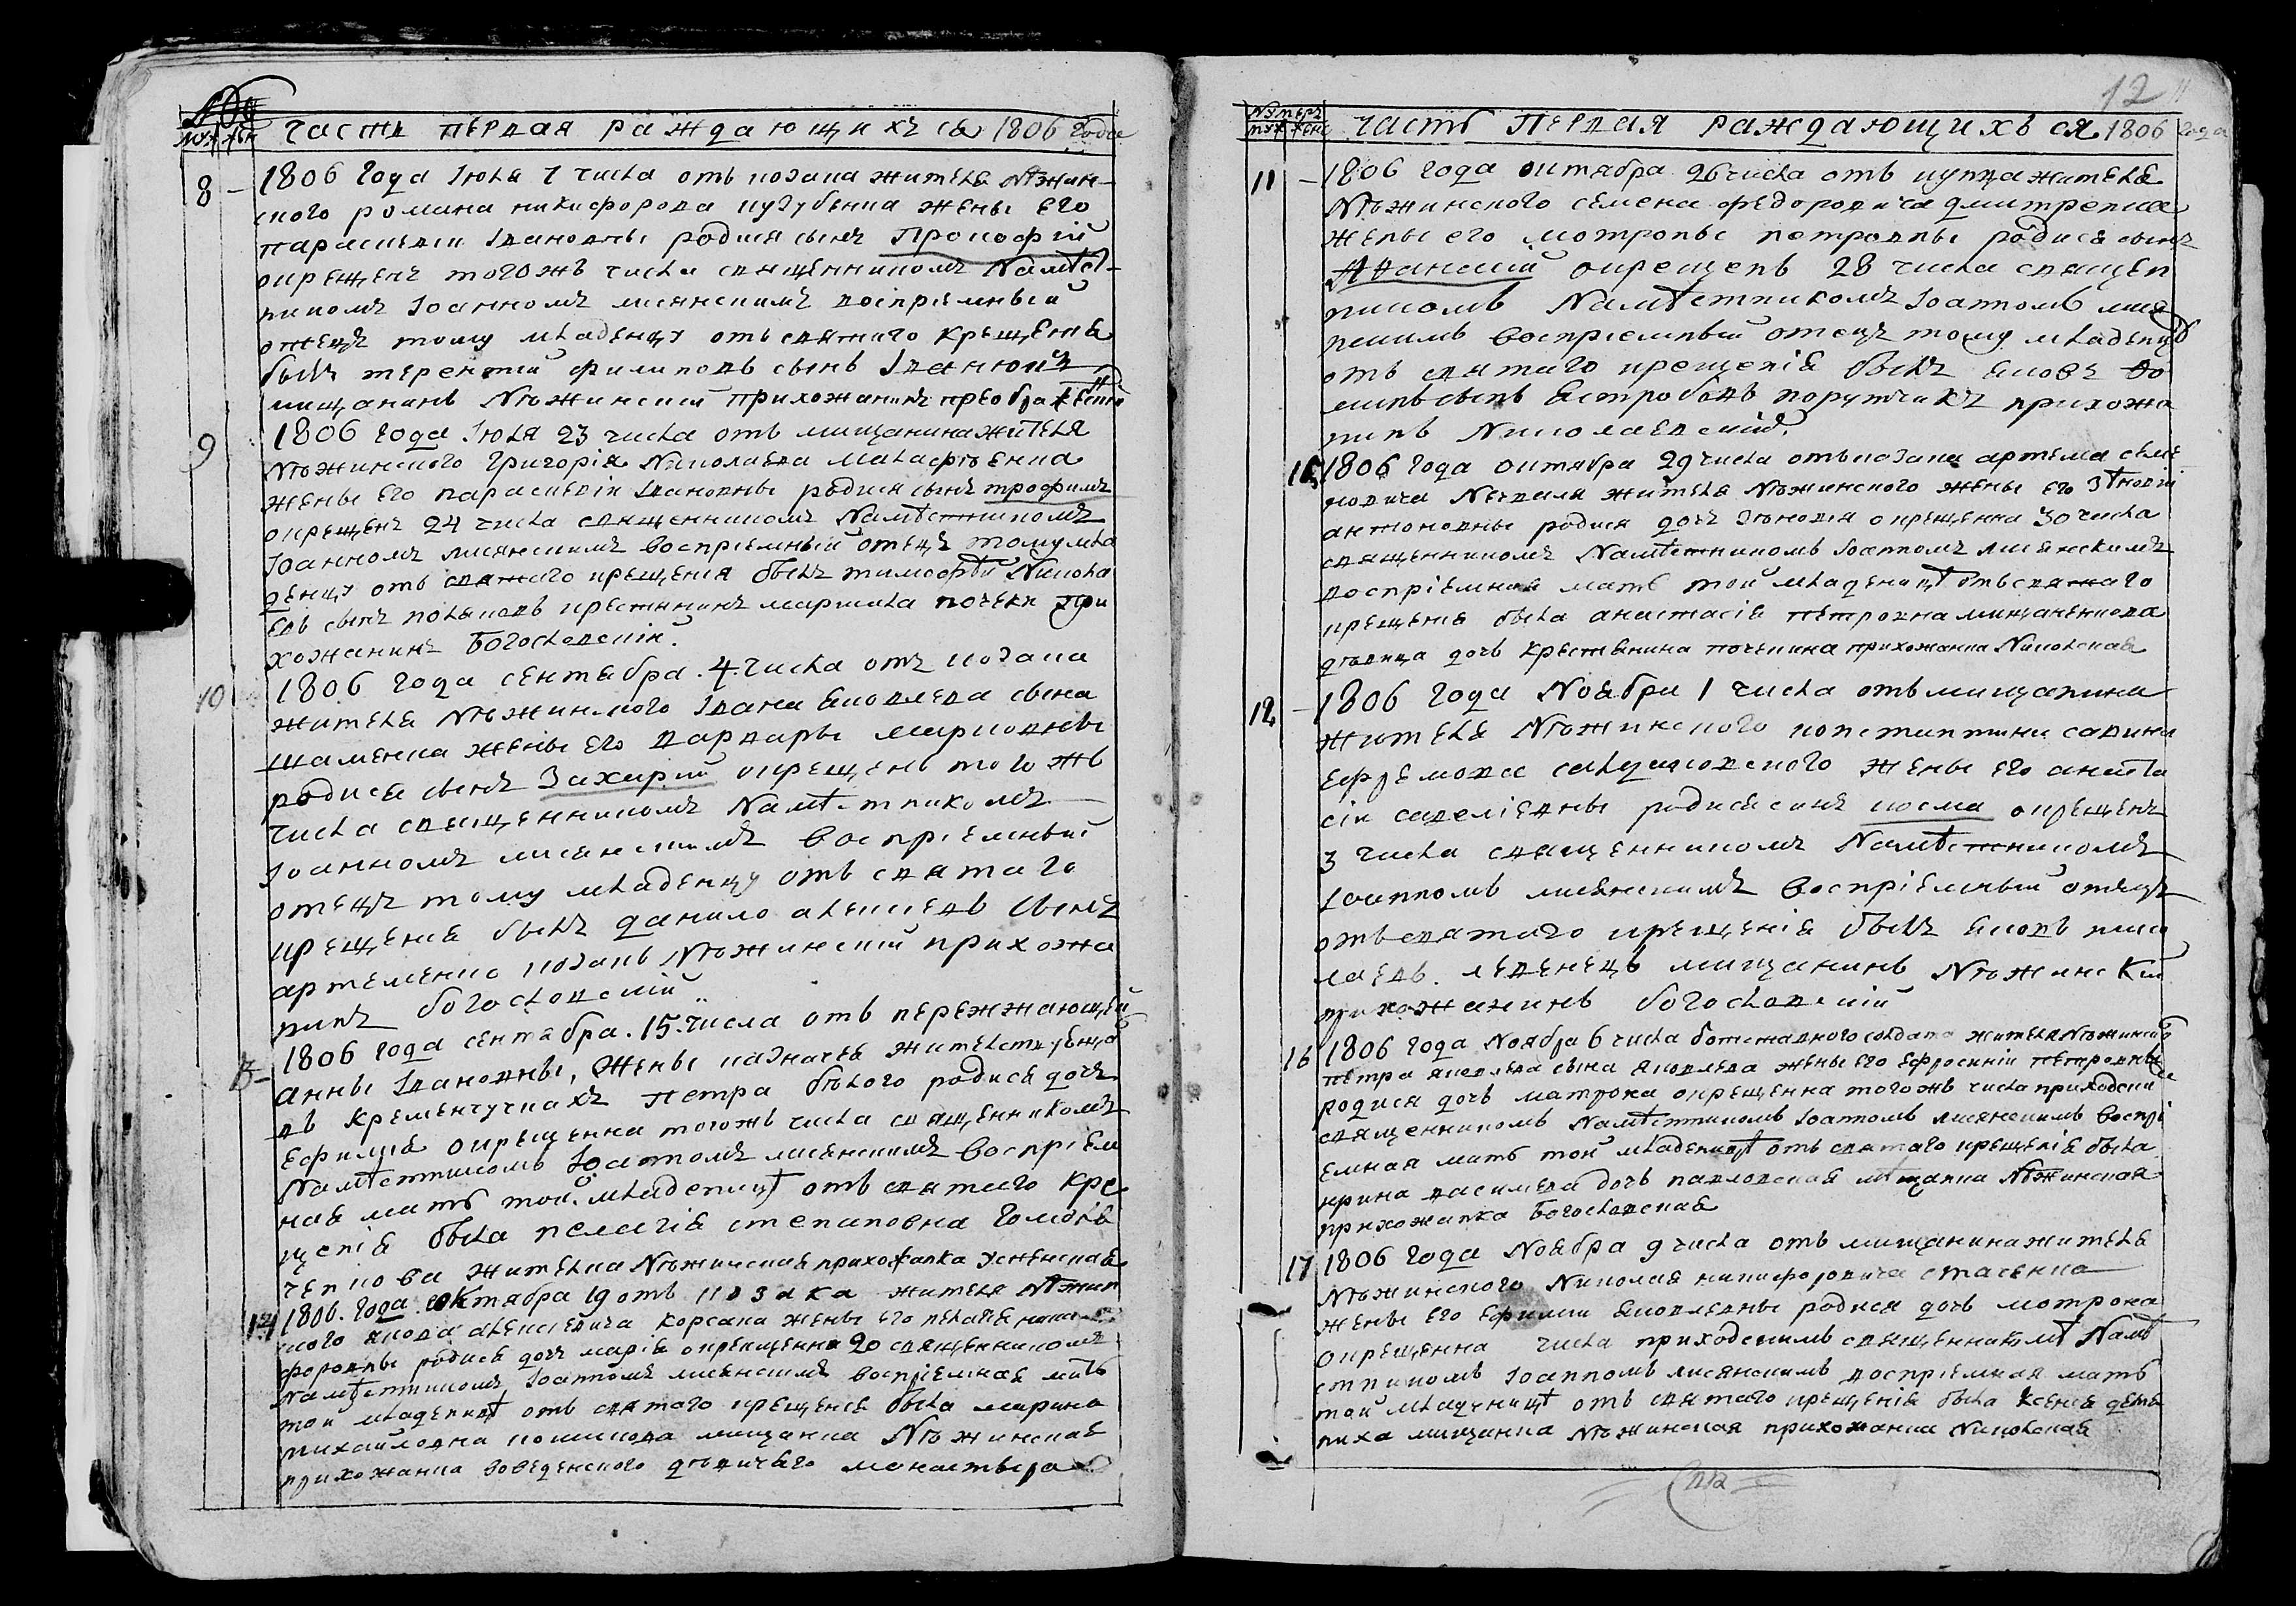 муж жен
часть первая раждающихъ ся 1806 года
8 – 1806 года Июля 7 числа отъ козака жителя Нѣжин-
ского романа никифорова кузубенка жены его
параскевiи Iвановны родися сынъ Прокофiй
окрещенъ того жъ числа священникомъ Намѣст-
никомъ Iоанномъ лисянскимъ воспрiемный
отецъ тому младенцу отъ святаго крещенiя
былъ терентiй филиповъ сынъ
мищанинъ Нѣжинскiй прихожанинъ
9 1806 года Июля 23 числа отъ мищанина жителя
Нѣжинского григорiя Николаева малафѣенка
жены его параскевiи Iвановны родися сынъ трофимъ
окрещенъ 24 числа священникомъ Намѣстникомъ
Iоанномъ лисянскимъ воспрiемный отецъ тому мла
денцу отъ святаго крещенiя былъ тимофѣй Никола
евъ сынъ поляковъ крестянинъ маршала почеки при
хожанинъ Богословскiй.
10 1806 года сентября .4. числа отъ козака
жителя Нѣжинского Iвана яковлева сына
шаменка жены его варвары марковны
родися сынъ Захарiй окрещенъ того жъ
числа священникомъ Намѣстникомъ
Iоанномъ лисянскимъ воспрiемный
отецъ тому младенцу отъ святаго
крещенiя былъ данило алексѣевъ сынъ
артеменко козакъ Нѣжинскiй прихожа
нинъ богословскiй
13 – 1806 года сентября .15. числа отъ переежжающей
анны Iвановны, жены казначея жителствующа
въ кременчугчкахъ петра бѣлого родися дочь
ефимiя окрещенна того жъ числа священникомъ
Намѣстникомъ Iоанномъ лисянскимъ воспрiем
ная мать той младеницѣ отъ святаго кре
щенiя была пелагiя степановна
жителка Нѣжинская прихожанка успенская
14 1806. года октября 19 отъ козака жителя Нѣжин
ского якова алексѣевича корсака жены его пелагеи никi
форовны родися дочь марiя окрещенна 20 священникомъ
Намѣстникомъ Iоанномъ лисянскимъ воспрiемная мать
той младеницѣ отъ святаго крещенiя была марина
михайловна мищанка Нѣжинская
прихожанка Введенского дѣвичьего монастыря
12
Нумеръ
муж жен
часть первая раждающихъ ся 1806 года
11 – 1806 года октября 26 числа отъ купца жителя
Нѣжинского семена федоровича дмитренка
жены его мотроны петровны родися сынъ
Афанасiй окрещенъ 28 числа священ
никомъ Намѣстникомъ Iоанномъ лися
нскимъ воспрiемный отецъ тому младенцу
отъ святаго крещенiя былъ яковъ фо
минъ сынъ ястробовъ порутчикъ прихожа
нинъ Николаевскiй.
15 1806 года октября 29 числа отъ козака артема семе
новича Нечвала жителя Нѣжинского жены его зѣновiи
антоновны родися дочь зѣновiя окрещенна 30 числа
священникомъ Намѣстникомъ Iоанномъ лисянскимъ
воспрiемная мать той младеницѣ отъ святаго
крещенiя была анастасiя петровна мищаненкова
дѣвица дочь крестянина почекина прихожанка Николская
12 – 1806 года Ноября 1 числа отъ мищанина
жителя Нѣжинского константина савина
ефремова жены его анаста
сiи савелiевны родися синъ косма окрещенъ
3 числа священникомъ Намѣстникомъ
Iоанномъ лисянскимъ воспрiемный отецъ
отъ святаго крещенiя былъ яковъ нико
лаевъ леденецъ мищанинъ Нѣжинскiй
прихожанинъ богословскiй
16 1806 года Ноября 6 числа отставного солдата жителя Нѣжинскаго
петра яковлева сына яковлева жены его ефросинiи петровны
родися дочь матрона окрещенна того жъ числа приходски
священникомъ Намѣстникомъ Iоанномъ лисянскимъ воспрi
емная мать той младеницѣ отъ святаго крещенiя была
ирина василiева дочь павловская мѣщанка Нѣжинская
прихожанка Богословская
17 1806 года Ноября 9 числа отъ мищанина жителя
Нѣжинского Николая никифоровича стаченка
жены его ефимии яковлевны родися дочь мотрона
окрещенна числа приходскимъ священникомъ Намѣ
стникомъ Iоанномъ лисянскимъ воспрiемная мать
той младеницѣ отъ святаго крещенiя была ксенiя
мищанка Нѣжинская прихожанка Николская